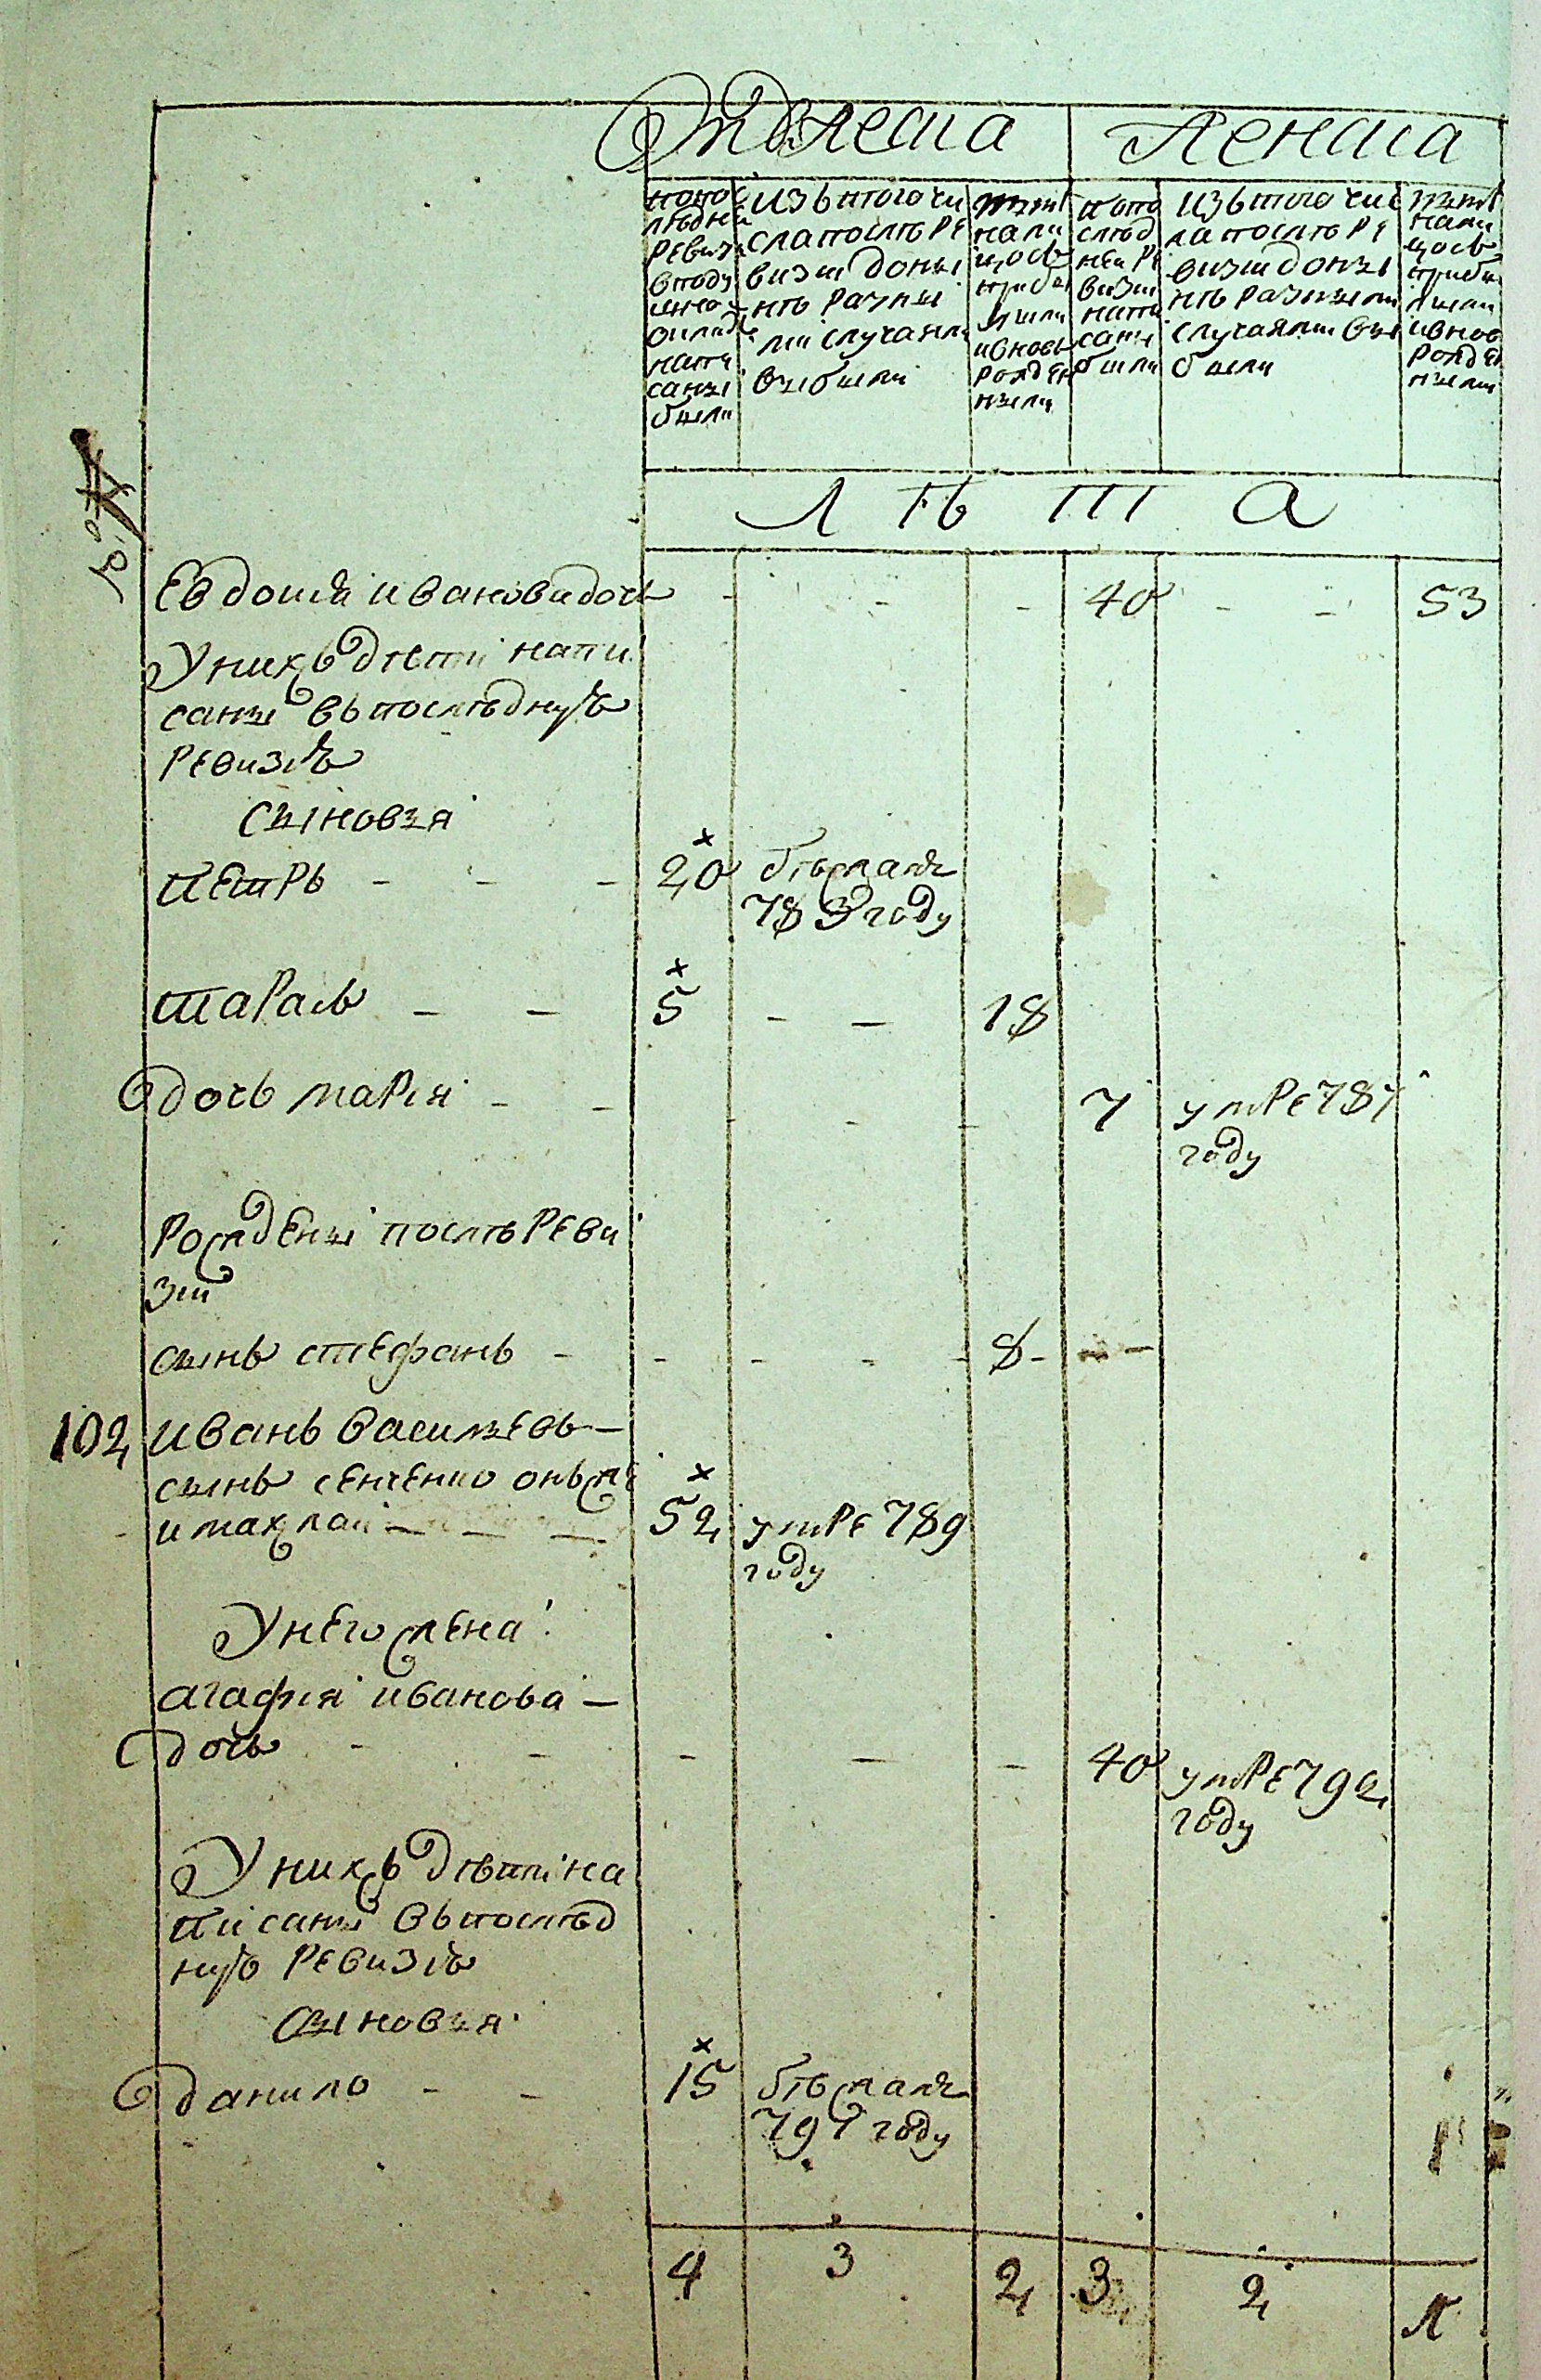 Мужеска Женска
по последней ревизи в подушной окладъ написаны были
изъ того числа после ревизии до ныне разными случаями выбыли
ныне на лицо съ прибылыми и вновь рожденными
по последней ревизии написаны были
изъ того числа после ревизии до ныне разными случаями выбыли
ныне на лицо съ прибылыми и вновь рожденными
Лѣта
Евдокия Иванова дочь - - - 40 - - 53
У нихъ дѣти напи
саны въ последную
ревизию
сыновья
Петръ - - - 20 бѣжалъ
783 году
Тарасъ - - 5 - - 18
дочь Мария - - - - 7 умре 787
году
рожденны послѣ реви
зии
сынъ Стефанъ - - - - - 8 - - -
102 Иванъ Васильевъ -
сынъ Сенченко онъ же
и Махлай - - - 52 умре 789
году
У него жена
Агафия Иванова -
дочь - - - - - 40 умре 792
году
У нихъ дѣти на
писаны въ послѣд
ную ревизию
сыновья
Данило - - 15 бѣжалъ
791 году
4 3 2 3 2